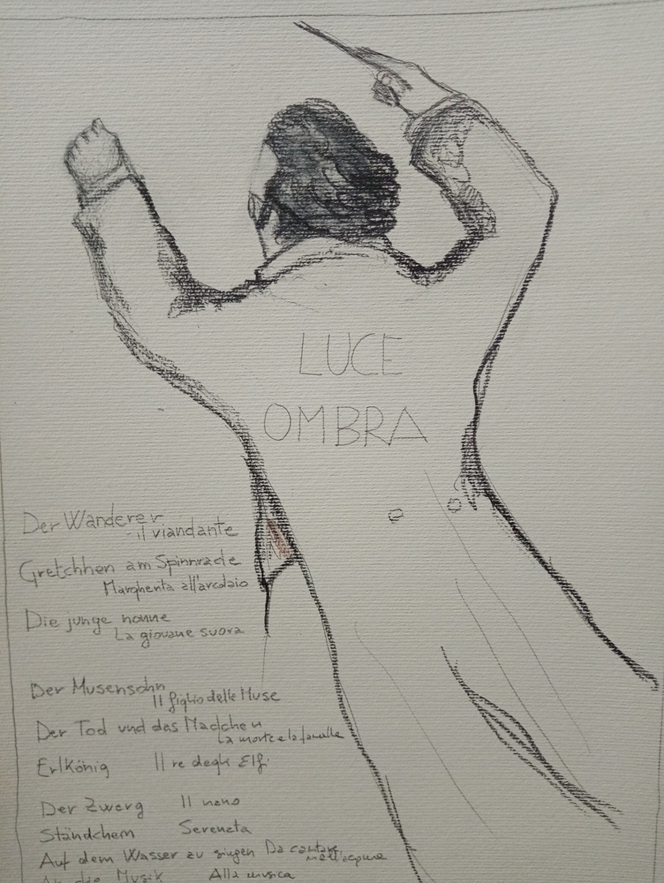 LUCE
OMBRA
Der Wanderer
- il viandante
Gretchhen am Spinnrade
Margherita all'arcolaio
Die junge nonne
La giovane suora
Der Musensohn
Il figlio delle Muse
Der Tod und das Madchen
La morte e la
Erlkönig Il re degli Elfi
Der Zwerg Il nano
Ständchem Sereneta
Auf dem Wasser zu singen Da cantare
nell'acqua
An die Musik Alla musica